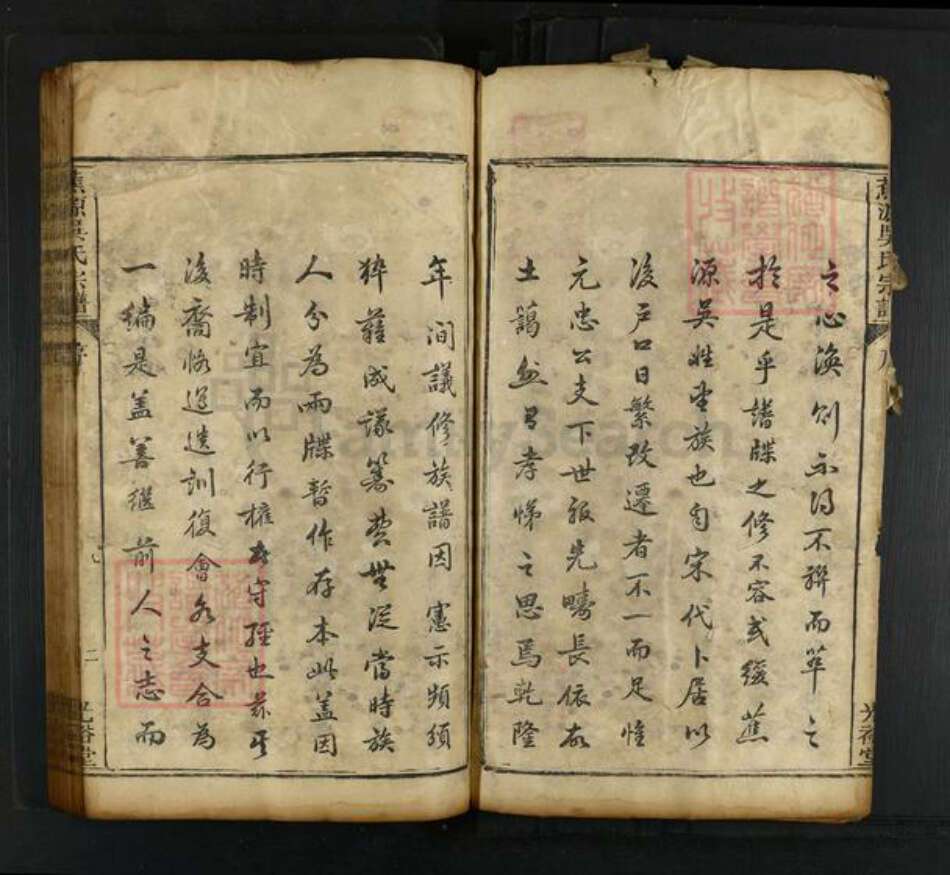 蕉源吳氏宗譜
序
之心渙則不得不聯而萃之
於是乎譜牒之修不容或緩蕉
源吳姓望族也自宋代卜居以
後戶口日繁改遷者不一而足惟
元忠公支下世服先疇長依故
土藹然有孝悌之思焉乾隆
年間議修族譜因憲示頻頒
猝難成議篆世從當時族
人分為兩牒暫作存本此蓋因
時制宜而以行權守經也茲其
後裔恪遵遺訓復會各支合為
一編是蓋善繼前人之志而
蕉源吳氏宗譜
序
二
光裕堂